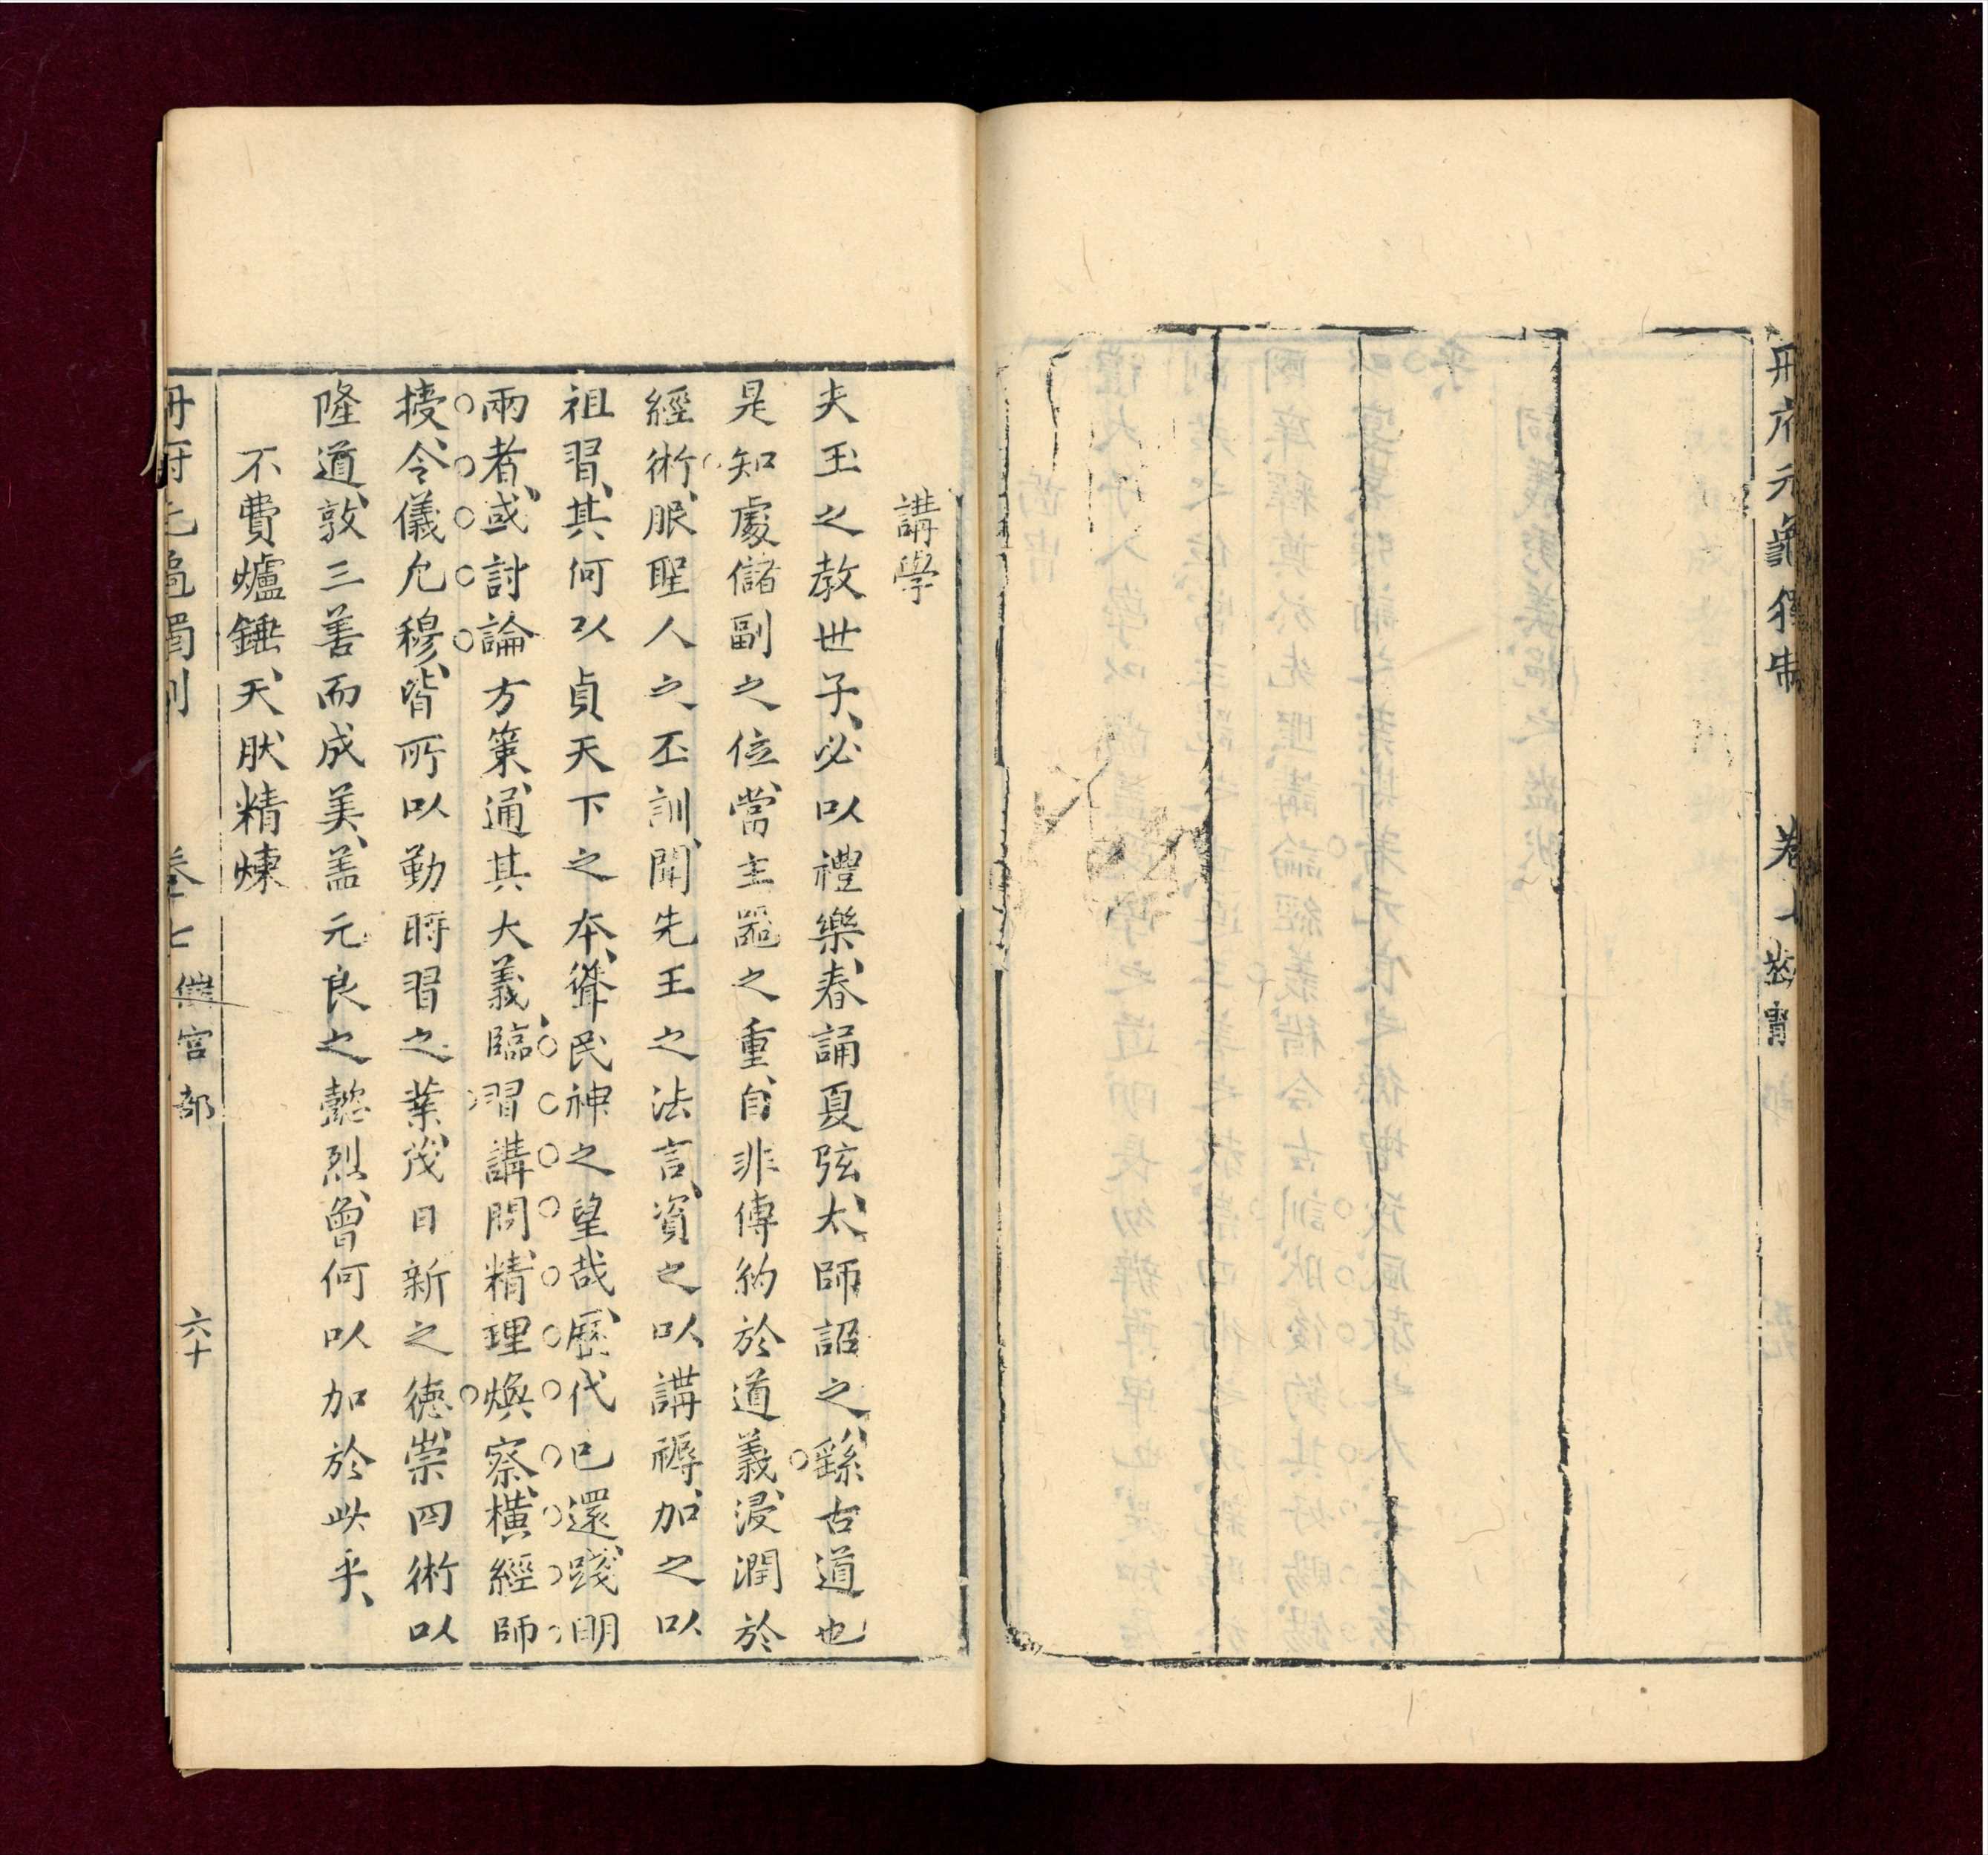 冊府元龜獨制 卷七
講學
夫王之教世子、必以禮樂、春誦夏弦、太師詔之、繇古道也
是知處儲副之位、當主器之重、自非傅納於道義、浸潤於
經術、服聖人之丕訓、聞先王之法言、資之以講禆、加之以
祖習、其何以貞天下之本、聳民神之望哉、歷代已還、踐明
兩者、或討論方策、通其大義、臨習講問、精理煥察、橫經師
授、令儀允穆、皆所以勤時習之業、茂日新之德、崇四術以
隆道、敦三善而成美、盖元良之懿烈、曾何以加於此乎、
不費爐錘、天肰精煉
冊府元龜獨制 卷七 儲宮部 六十